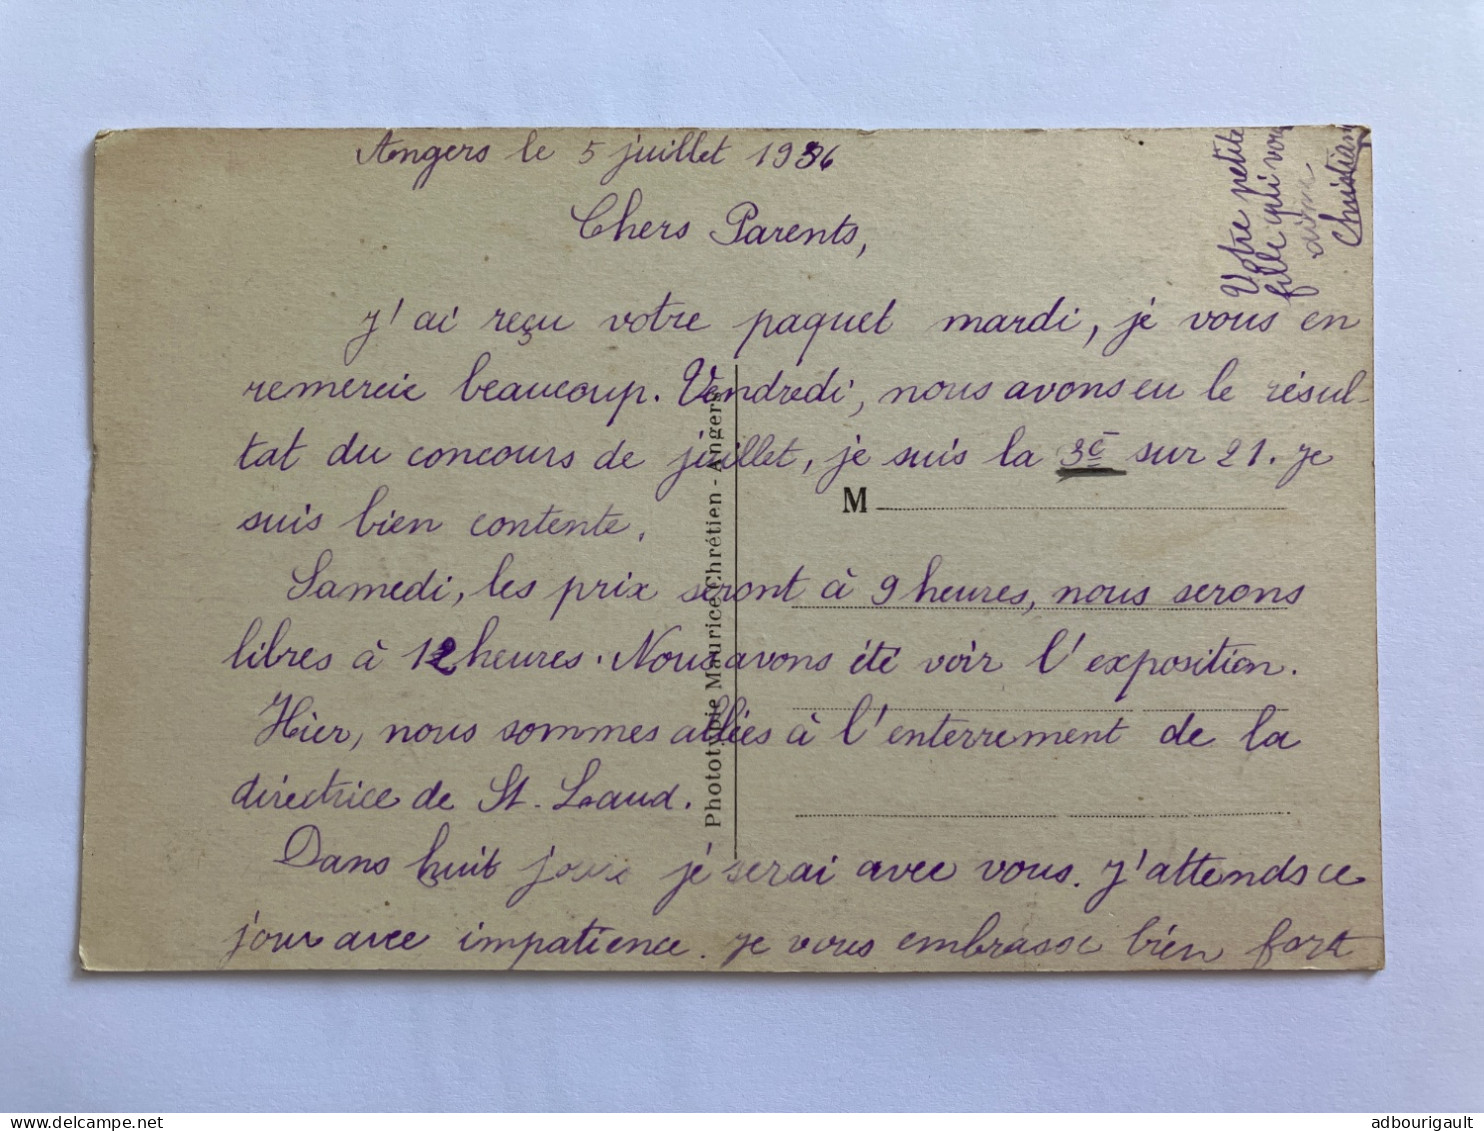 Angers le 5 juillet 1936
Chers Parents,
J'ai reçu votre paquet mardi, je vous en
remercie beaucoup. Vendredi, nous avons eu le résul-
tat du concours de juillet, je suis la 3e sur 21. Je
suis bien contente.
Samedi, les prix seront à 9 heures, nous serons
libres à 12 heures. Nous avons été voir l'exposition.
Hier, nous sommes allées à l'enterrement de la
directrice de St. Laud.
Dans huit jours je serai avec vous. J'attends ce
jour avec impatience. Je vous embrasse bien fort
Votre petite
fille qui vous
aime
Christiane
M
Phototypie Maurice Chrétien - Angers
adbourigault